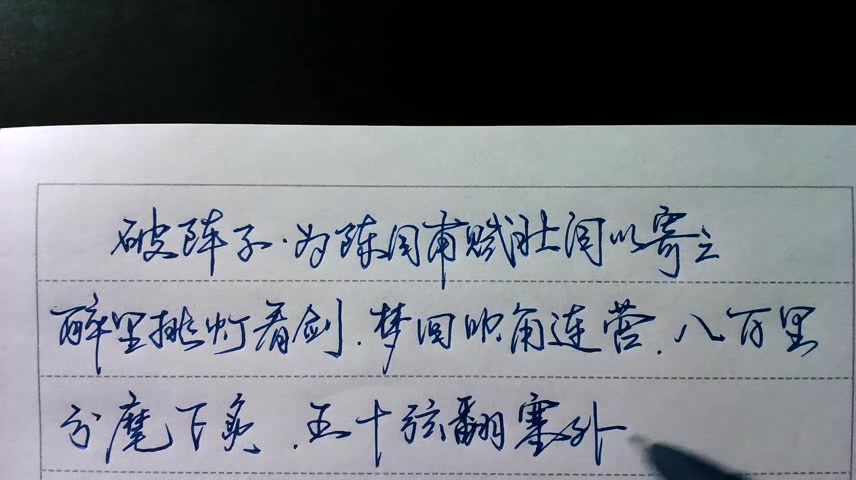 破阵子·为陈同甫赋壮词以寄之
醉里挑灯看剑.梦回吹角连营.八百里
分麾下炙.五十弦翻塞外